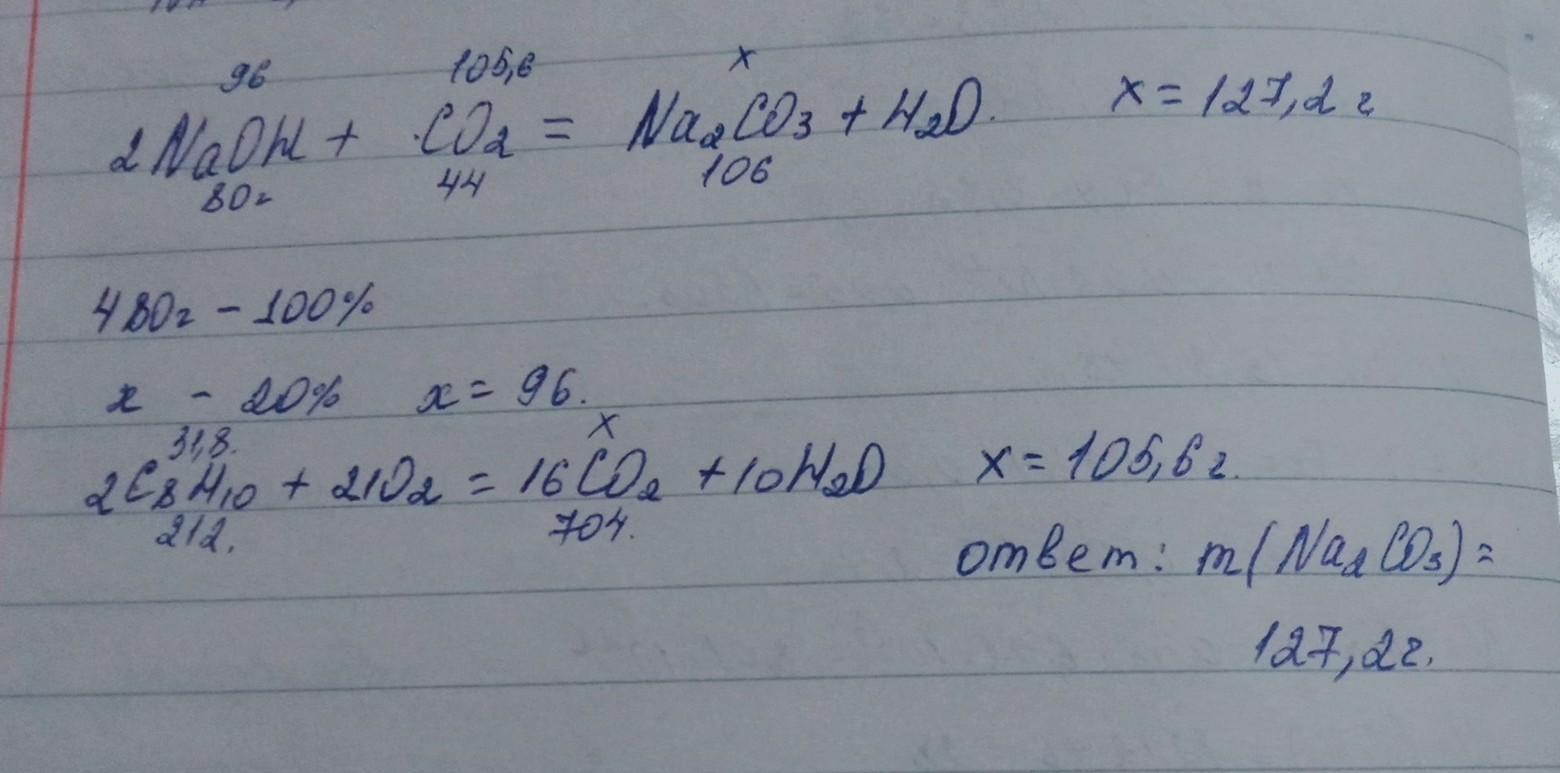 96 105,6 x
2NaOH + CO2 = Na2CO3 + H2O. x = 127,2 г
80г 44 106
480г - 100%
x - 20% x = 96.
31,8. x
2C8H10 + 21O2 = 16CO2 + 10H2O x = 105,6 г.
212. 704.
ответ: m(Na2CO3) =
127,2г.